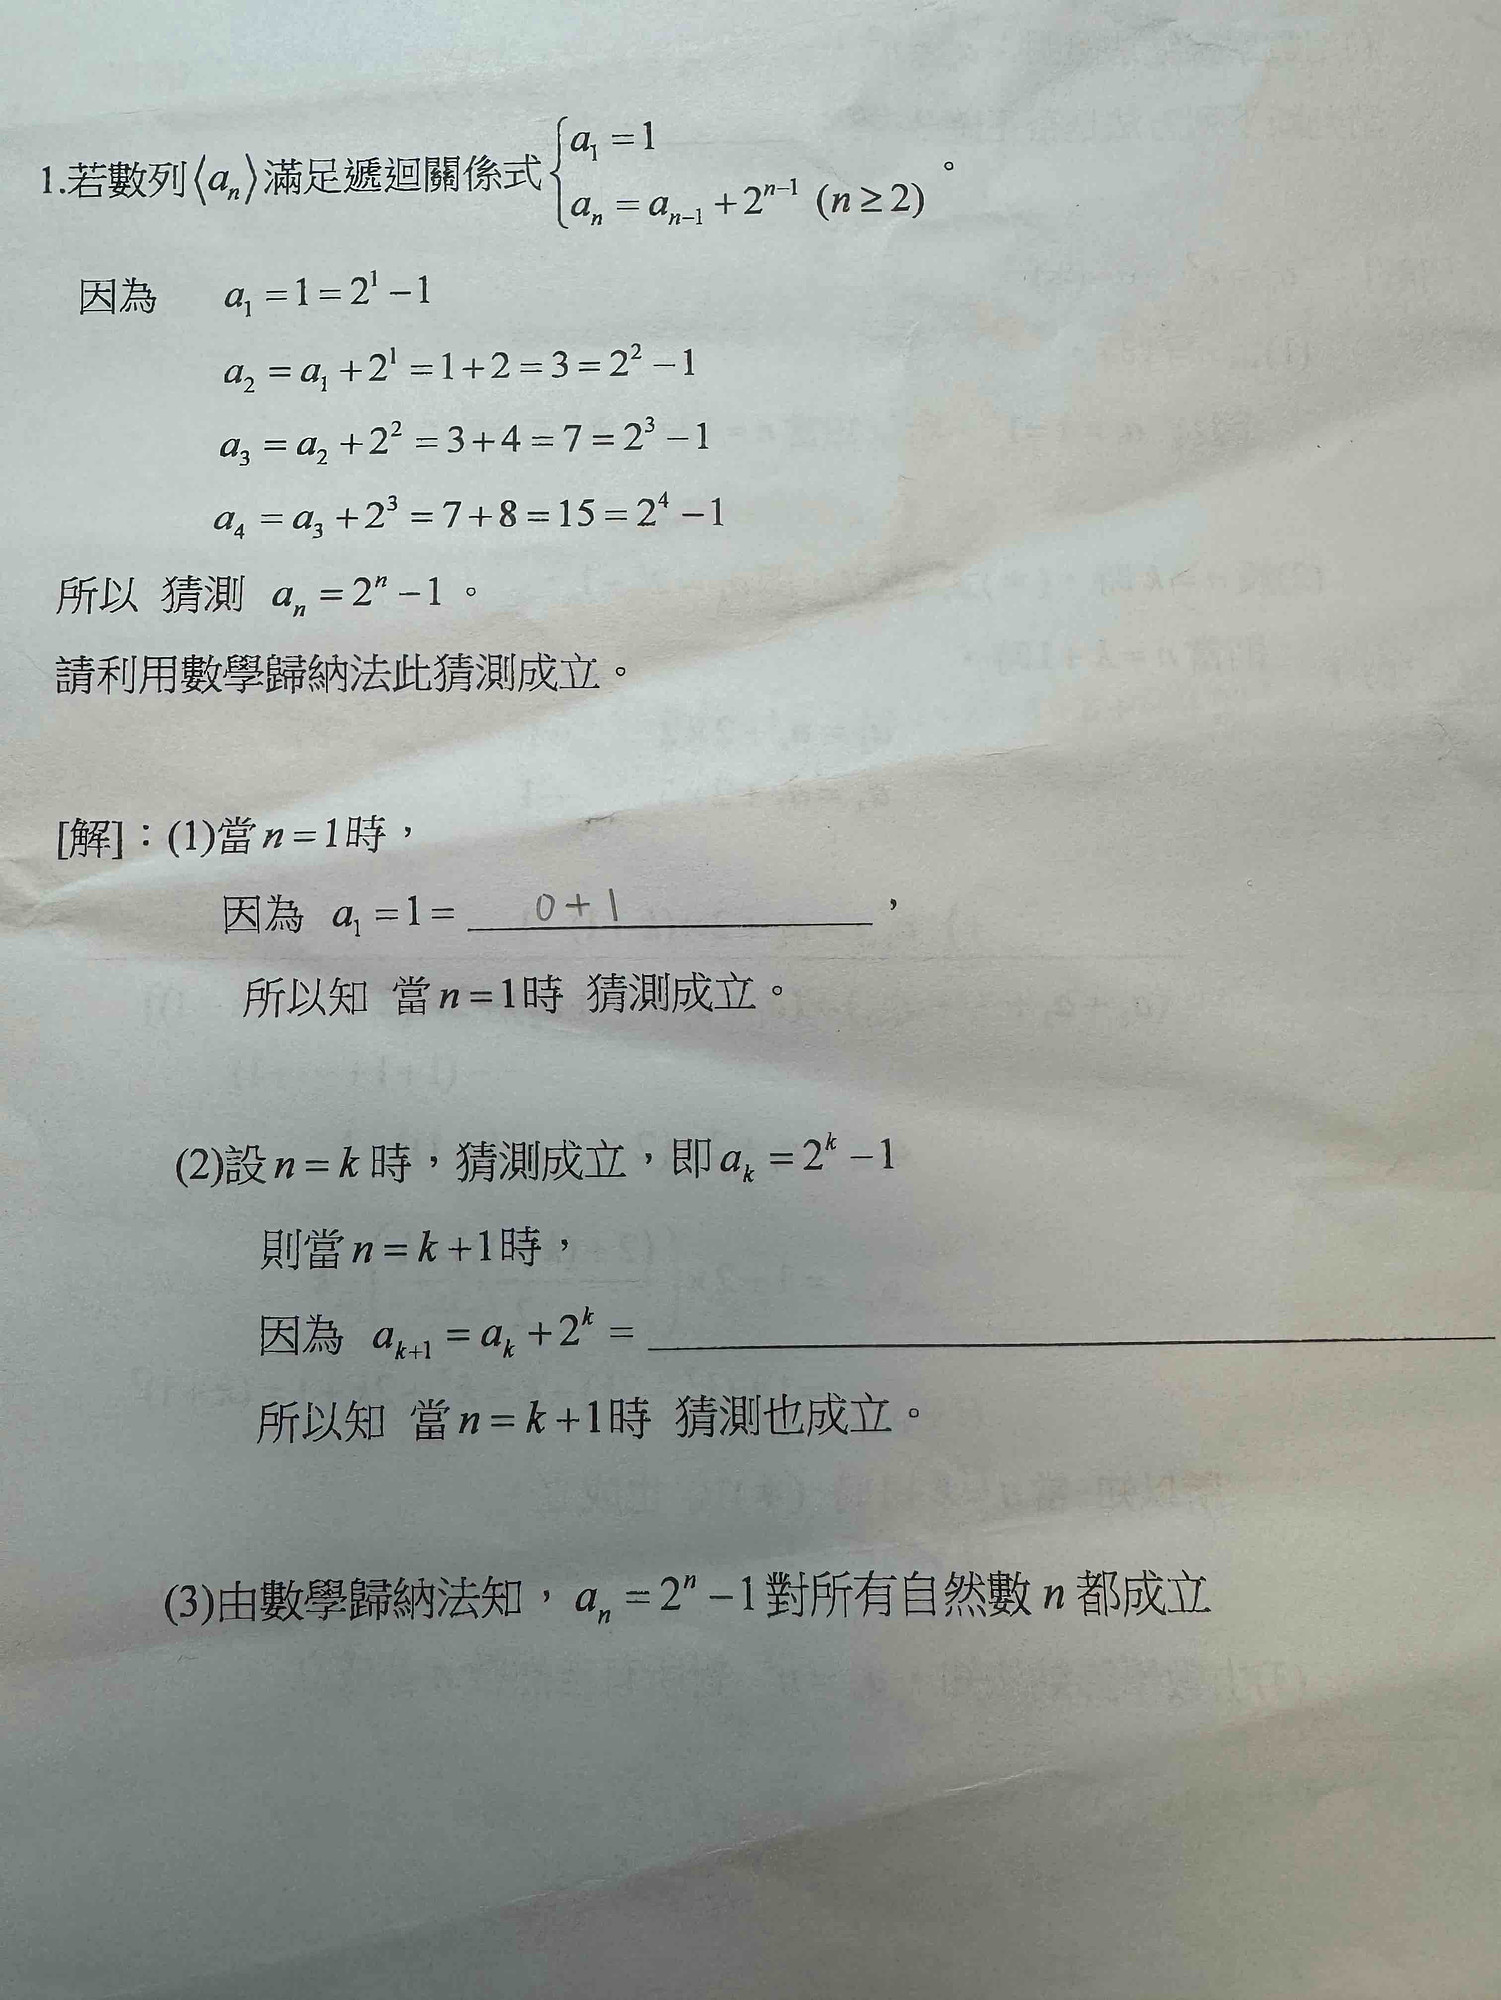 1.若數列⟨aₙ⟩滿足遞迴關係式{a₁ = 1
aₙ = aₙ₋₁ + 2ⁿ⁻¹ (n ≥ 2) 。
因為 a₁ = 1 = 2¹ − 1
a₂ = a₁ + 2¹ = 1 + 2 = 3 = 2² − 1
a₃ = a₂ + 2² = 3 + 4 = 7 = 2³ − 1
a₄ = a₃ + 2³ = 7 + 8 = 15 = 2⁴ − 1
所以 猜測 aₙ = 2ⁿ − 1。
請利用數學歸納法此猜測成立。
[解]:(1)當 n = 1時,
因為 a₁ = 1 = 0 + 1 ,
所以知 當 n = 1時 猜測成立。
(2)設 n = k 時,猜測成立,即 aₖ = 2ᵏ − 1
則當 n = k + 1時,
因為 aₖ₊₁ = aₖ + 2ᵏ =
所以知 當 n = k + 1時 猜測也成立。
(3)由數學歸納法知,aₙ = 2ⁿ − 1對所有自然數 n 都成立